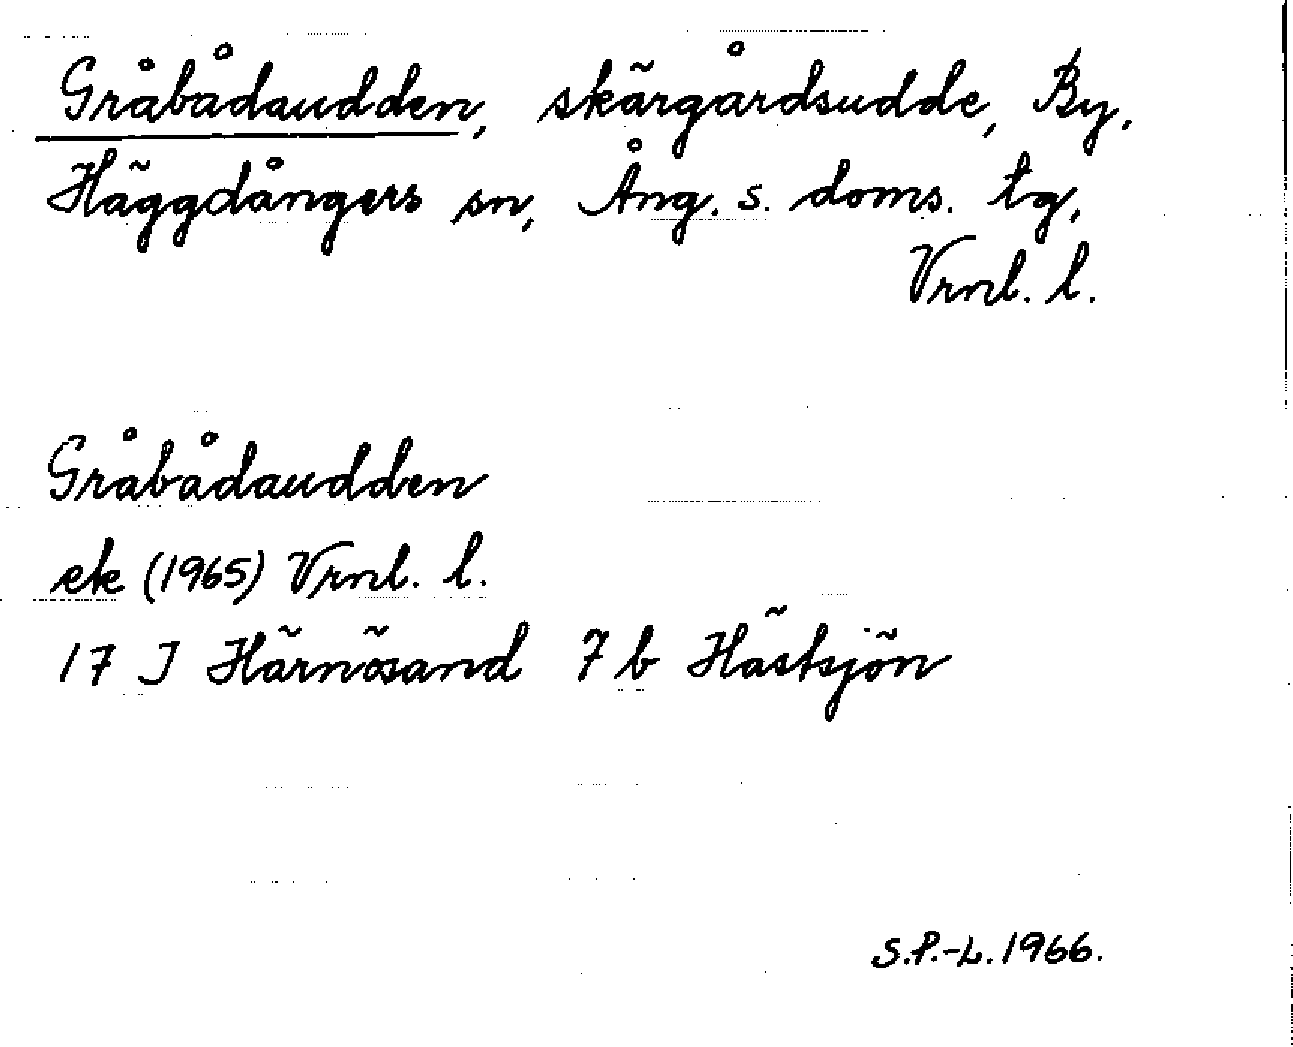 Gråbådaudden, skärgårdsudde, By,
Häggdångers sn, Ång. s. doms. tg,
Vrnl. l.
Gråbådaudden
ek (1965) Vrnl. l.
17 I Härnösand 7 b Hästsjön
S.P.-L. 1966.